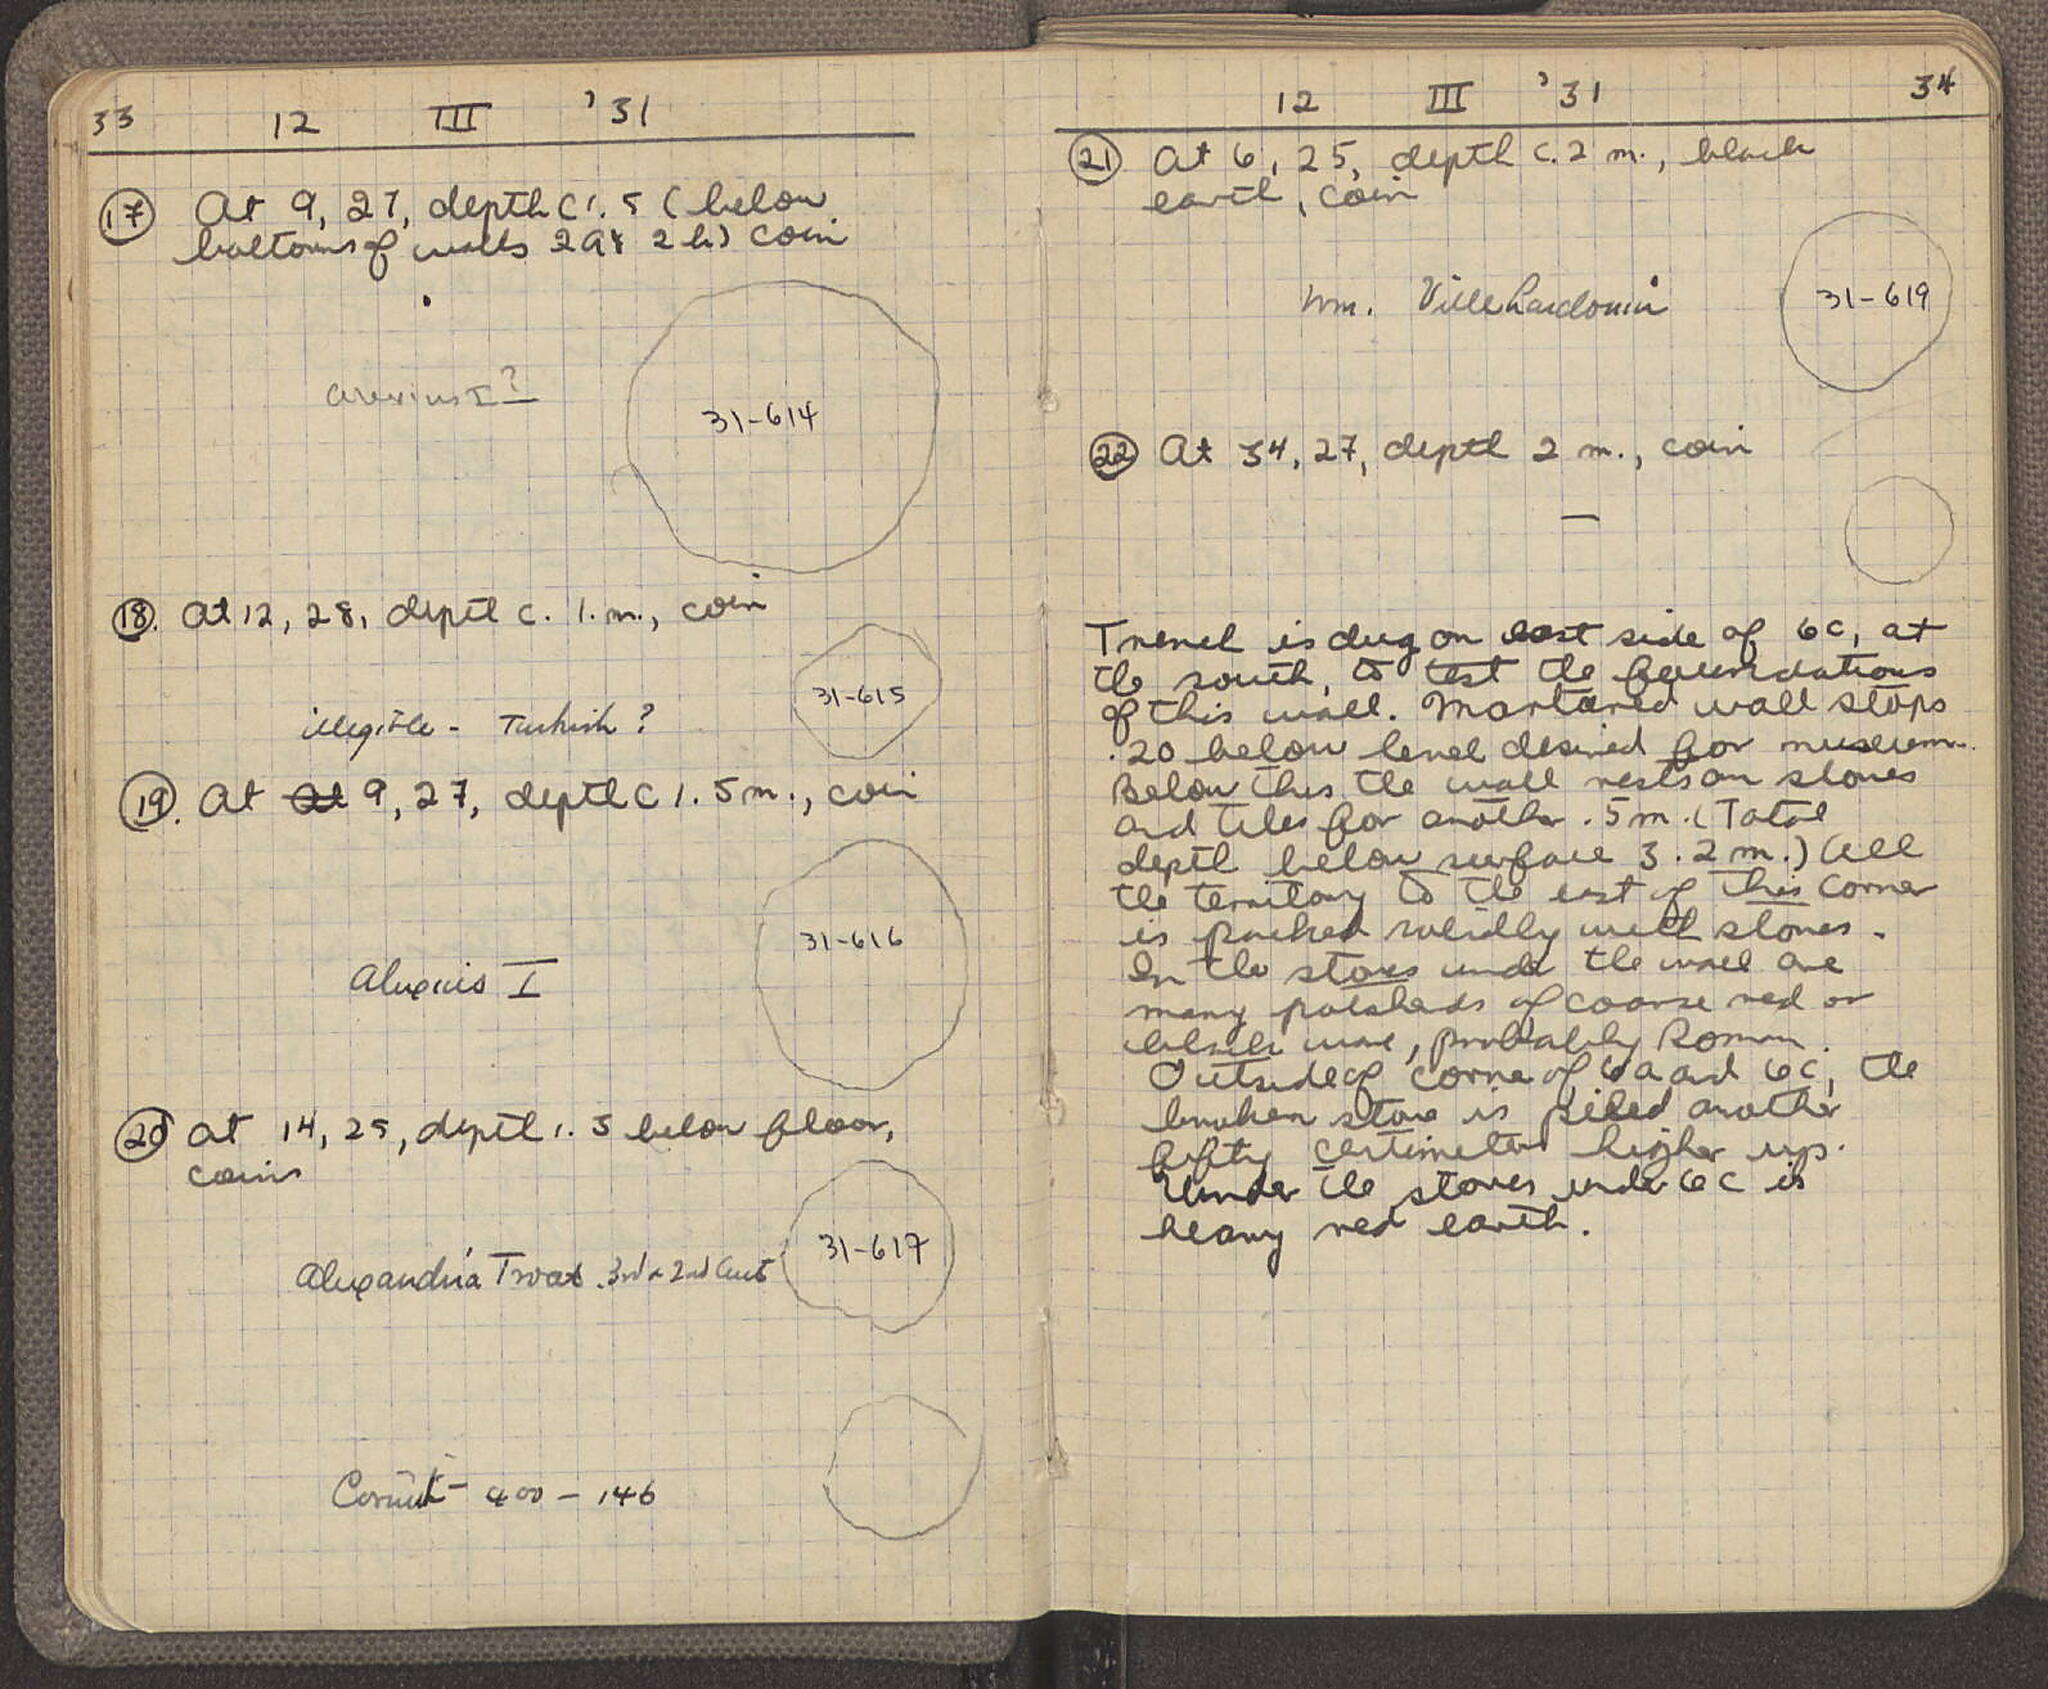 33 12 III '31
17 At 9, 27, depth c 1.5 (below
bottoms of walls 2a & 2b) coin
Alexius I?
31-614
18. At 12, 28, depth c. 1. m., coin
31-615
illegible - Turkish?
19. At At 9, 27, depth c 1.5 m., coin
31-616
Alexius I
20 At 14, 25, depth 1.5 below floor,
coins
31-617
Alexandria Troas. 3rd - 2nd Cent
Corinth - 400 - 146
12 III '31 34
21 At 6, 25, depth c. 2 m., black
earth, coin
Wm. Villehardouin
31-619
22 At 34, 27, depth 2 m., coin
—
Trench is dug on east side of 6c, at
the south, to test the foundations
of this wall. Mortared wall stops
.20 below level desired for museum.
Below this the wall rests on stones
and tiles for another .5 m. (Total
depth below surface 3.2 m.) All
the territory to the east of this corner
is packed solidly with stones.
In the stones under the wall are
many potsherds of coarse red or
black ware, probably Roman.
Outside of corner of 6a and 6c, the
broken stone is piled another
fifty centimeters higher up.
Under the stones under 6c is
heavy red earth.